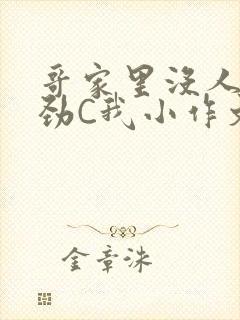 哥家里没人
劲C我小作文
金章洙